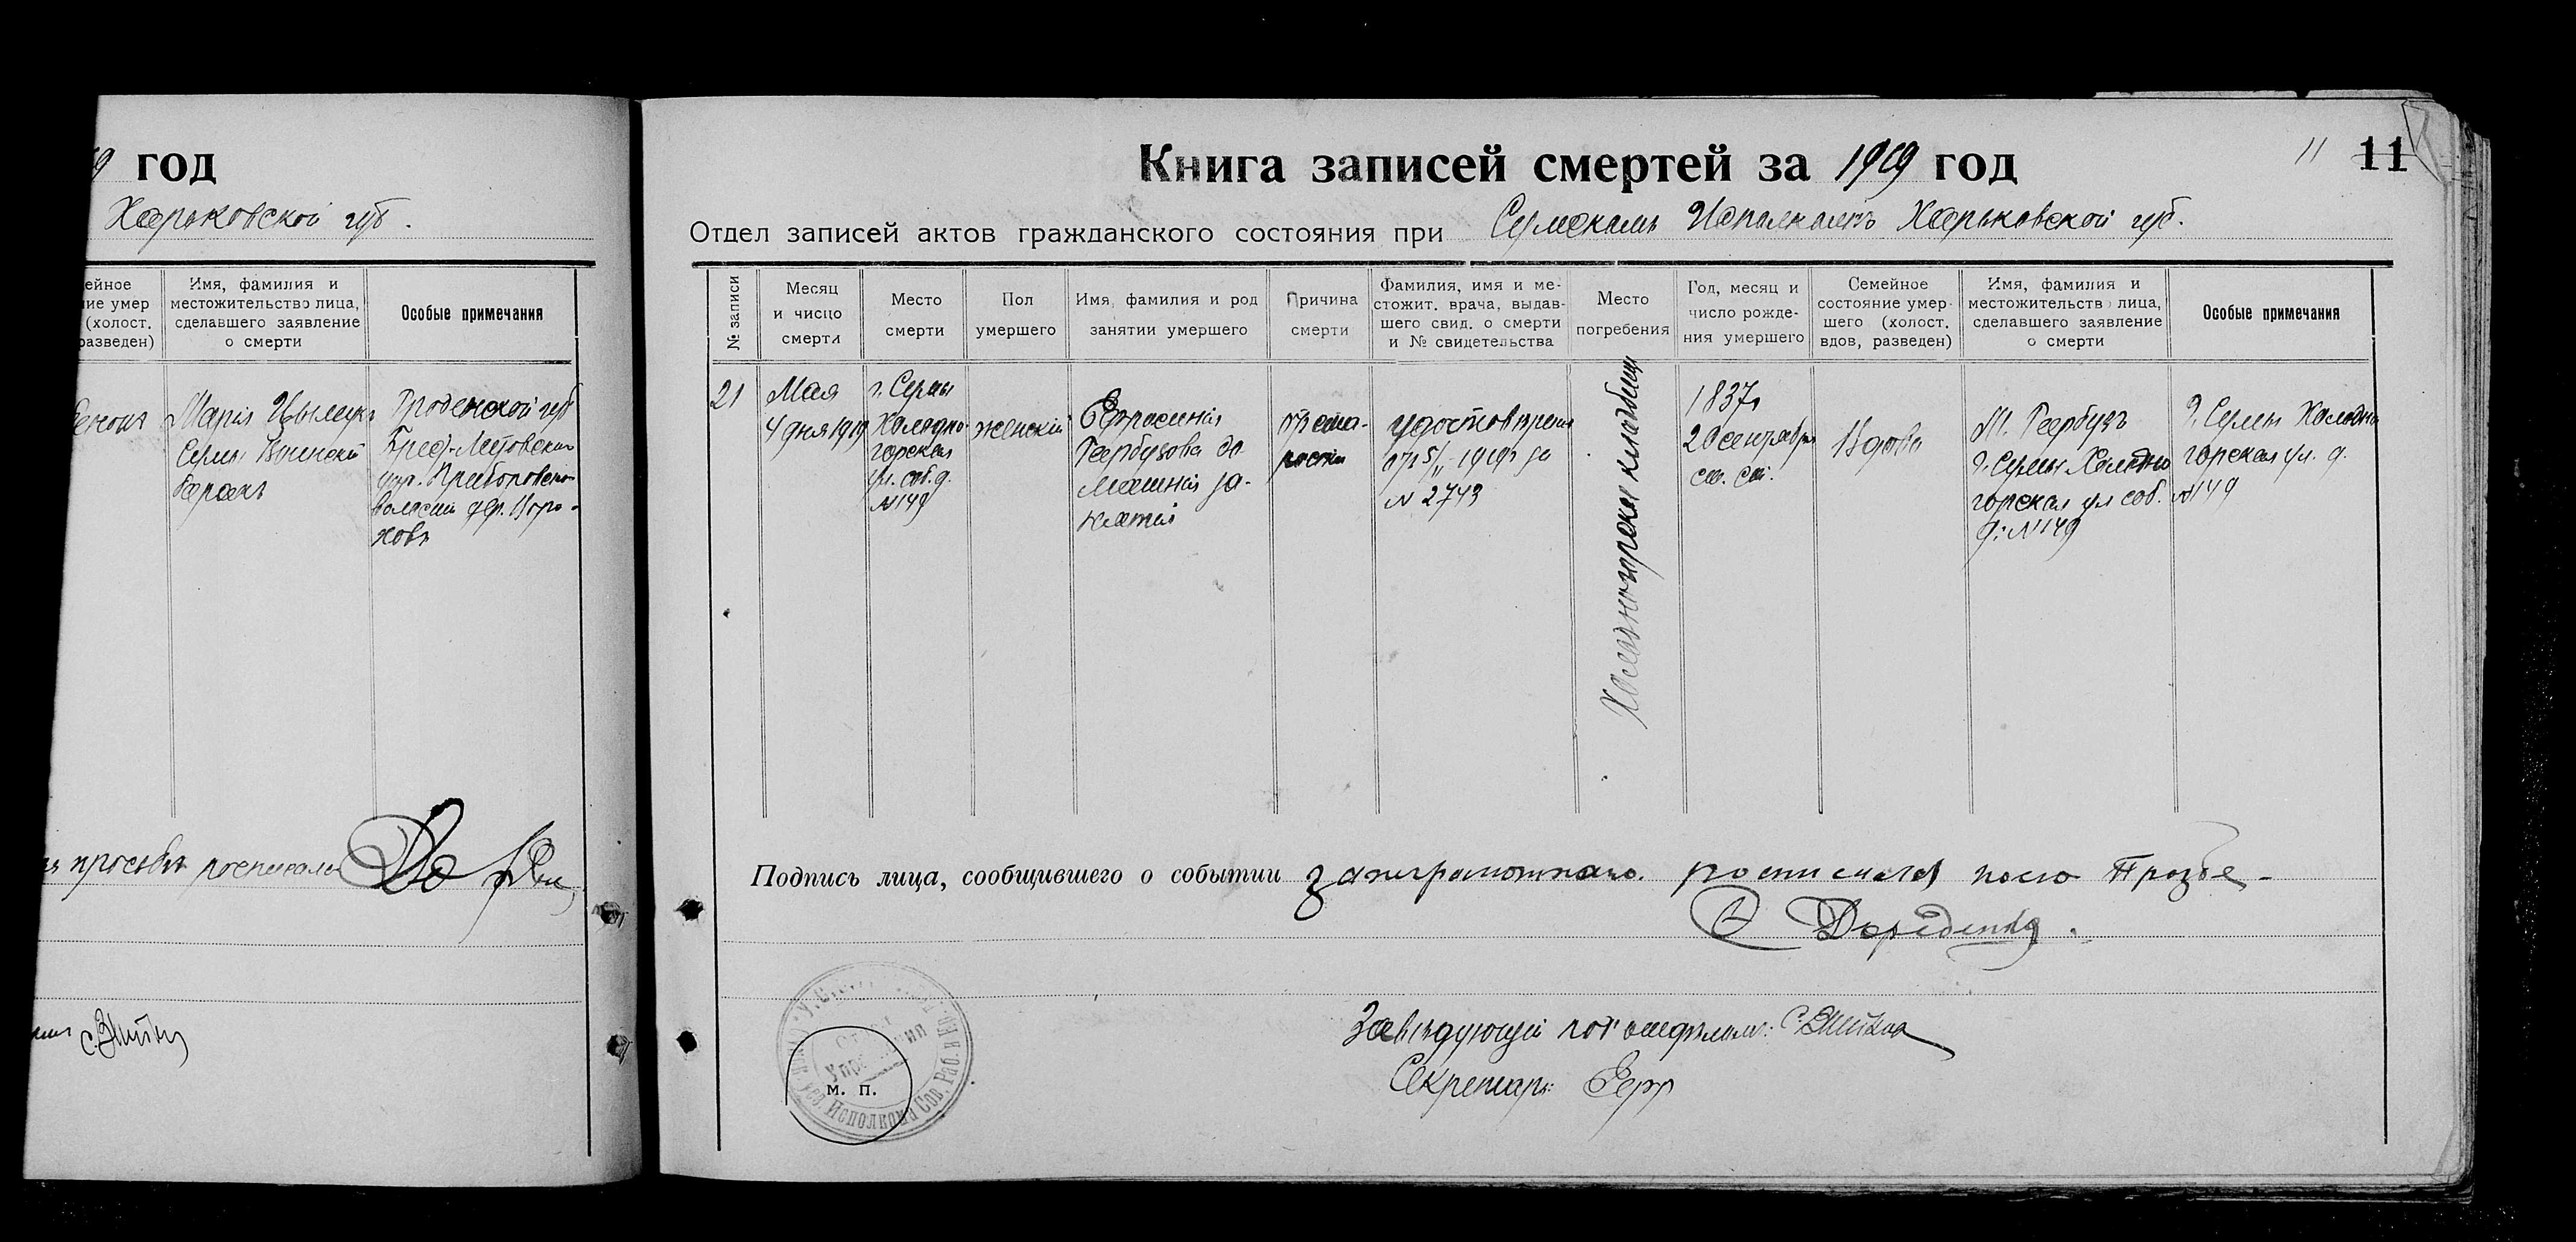 год
Харьковской губ.
Имя, фамилия и
местожительство лица,
сделавшего заявление
о смерти
Особые примечания
Мария
Сумы Воинский
баракъ
Гроденской губ
волости дер.
просьбѣ
Книга записей смертей за 1919 год
11 11
Отдел записей актов гражданского состояния при Сумскомъ Исполкомѣ Харьковской губ.
№ записи
Месяц
и чисцо
смерти
Место
смерти
Пол
умершего
Имя, фамилия и род
занятии умершего
Причина
смерти
Фамилия, имя и ме-
стожит. врача, выдав-
шего свид. о смерти
и № свидетельства
Место
погребения
Год, месяц и
число рожде-
ния умершего
Семейное
состояние умер-
шего (холост.
вдов, разведен)
Имя, фамилия и
местожительств лица,
сделавшего заявление
о смерти
Особые примечания
21
Мая
4 дня 1919
г. Сумы
Холодно-
горская
ул. соб. д.
№149
женскій
Ефросинія
Гарбузова до
машнія за-
нятія
отъ ста-
рости
удостовѣрен
от 5/V 1919г за
№ 2743
Холодногорское кладбище
1837г
20 сентября
ст. ст.
Вдова
М. Гарбузъ
г. Сумы Холодно
горская ул соб.
д. №149
г. Сумы Холодно
горская ул. д.
№149
Подпись лица, сообщившего о событии
М. П.
Завѣдующій подъотдѣломъ:
Секретарь